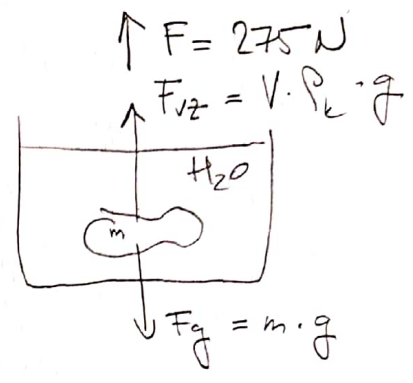 F = 275 N
Fvz = V · ρk · g
H2O
m
Fg = m · g